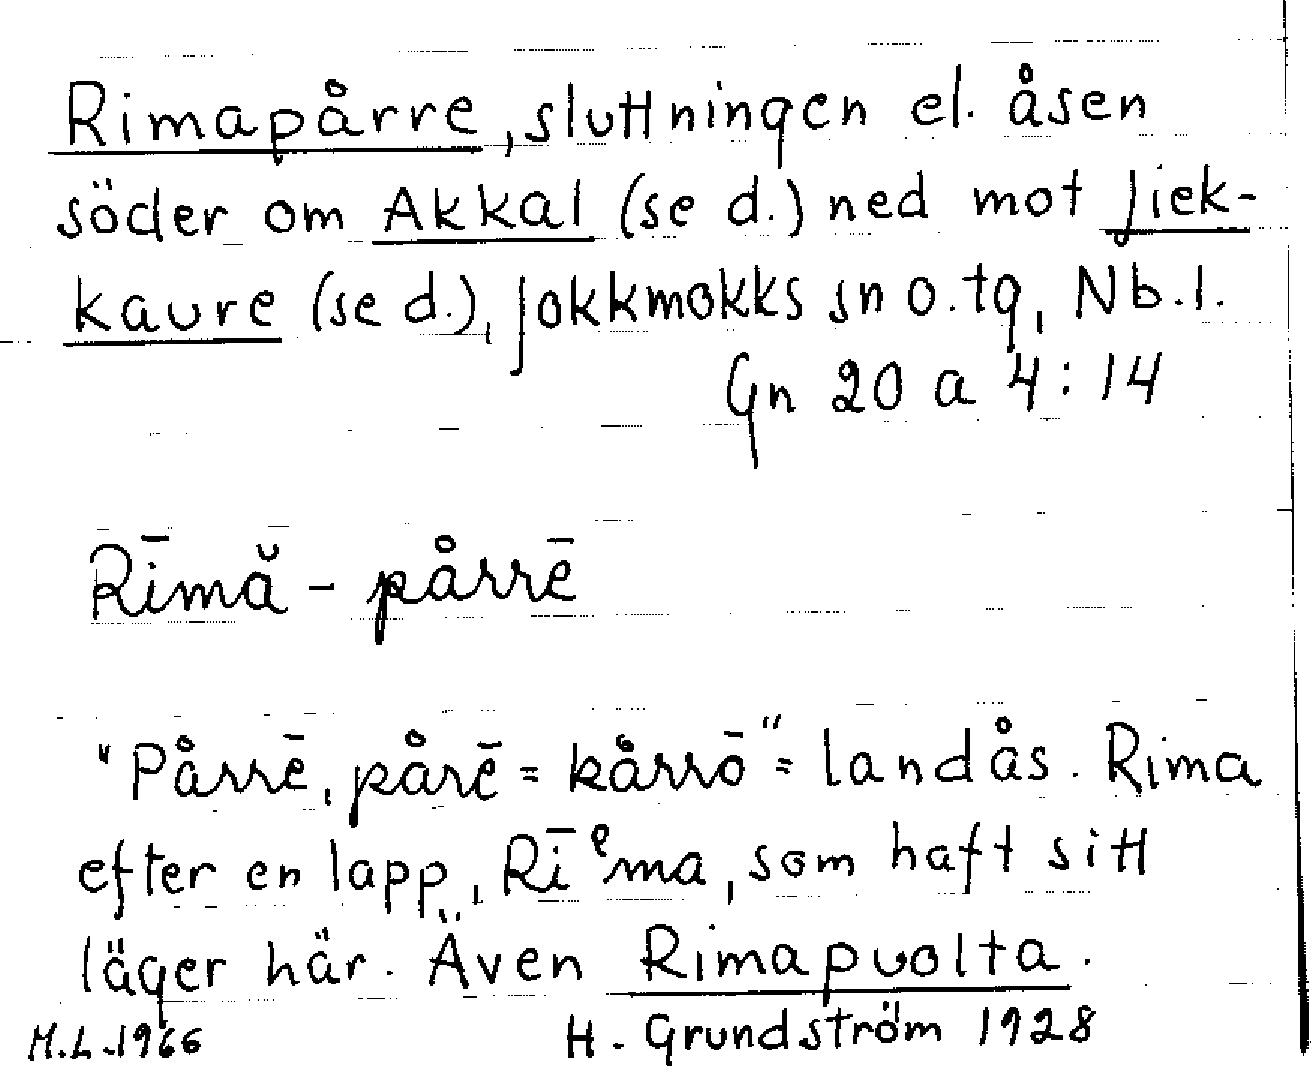 Rimapårre, sluttningen el. åsen
söder om Akkal (se d.) ned mot Jiek-
kaure (se d.), Jokkmokks sn o. tg, Nb. l.
Gn 20 a 4:14
Rīmă - pårrē
"Pårrē, pårē = kårrō" = landås. Rima
efter en lapp, Rīᵉma, som haft sitt
läger här. Även Rimapuolta.
M.L. 1966 H. Grundström 1928